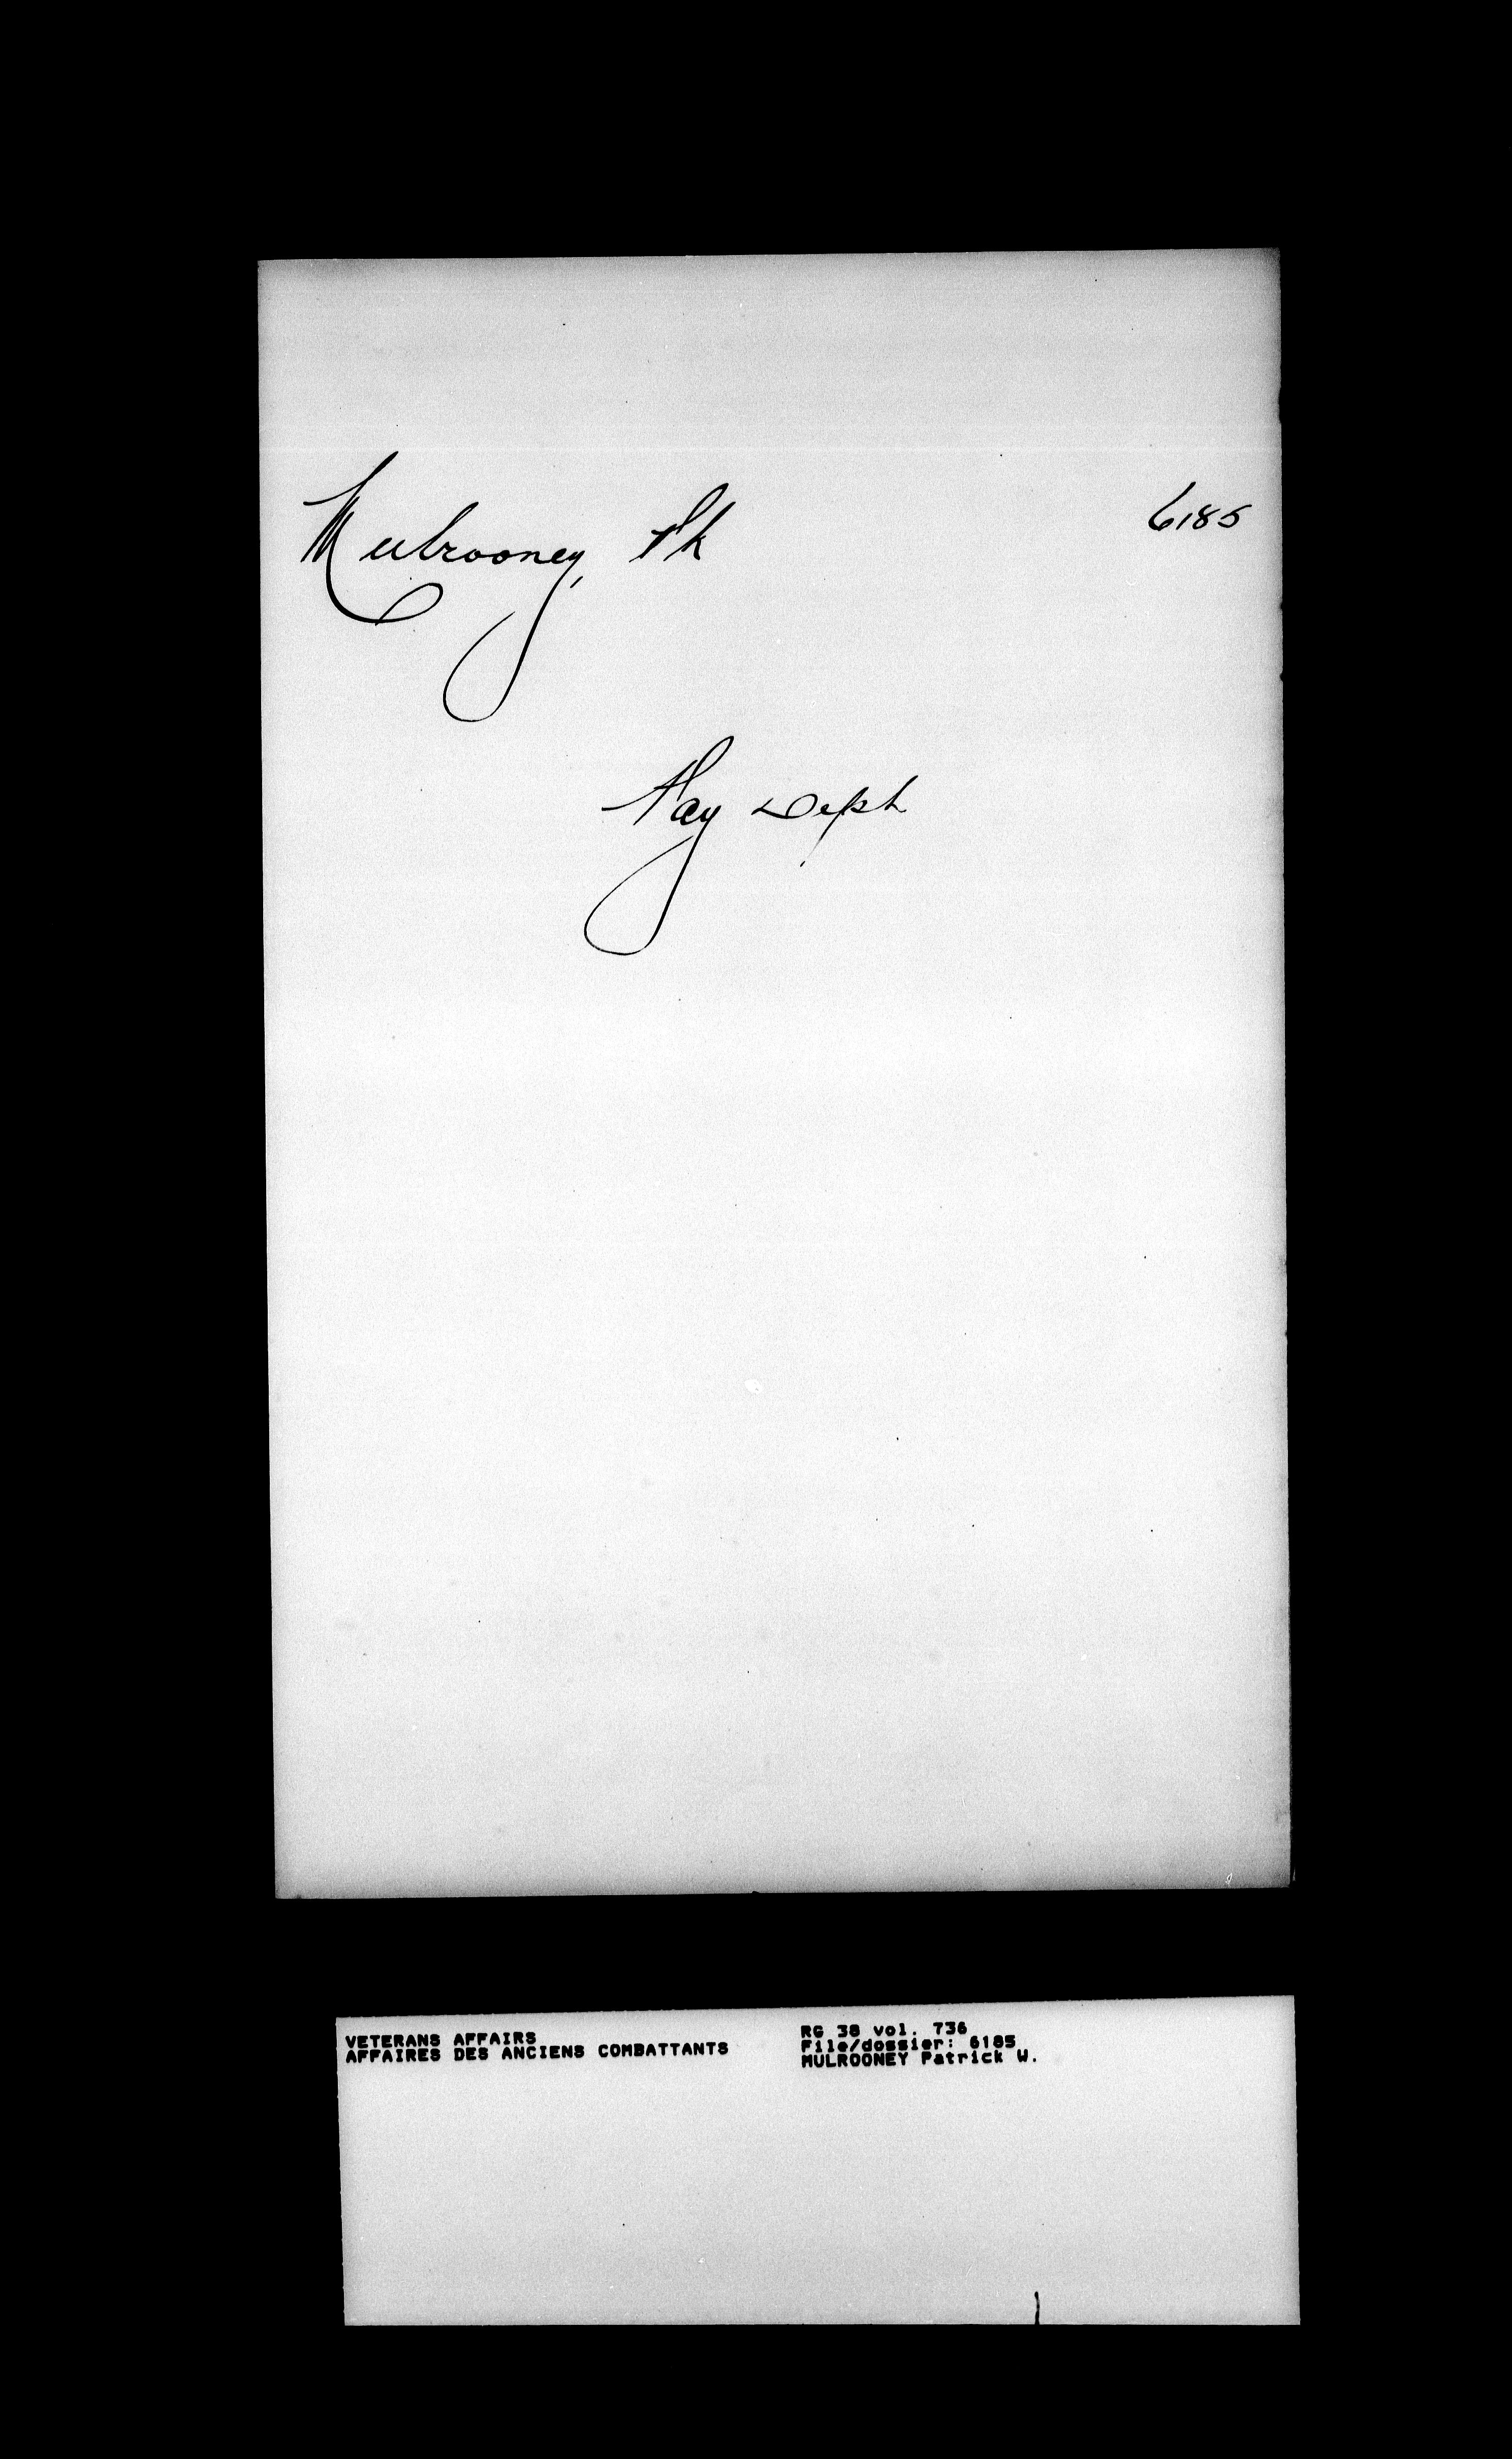 Mulrooney, Pk 6185
Pay Dept
VETERANS AFFAIRS
AFFAIRES DES ANCIENS COMBATTANTS
RG 38 vol. 736
File/dossier: 6185
MULROONEY Patrick W.